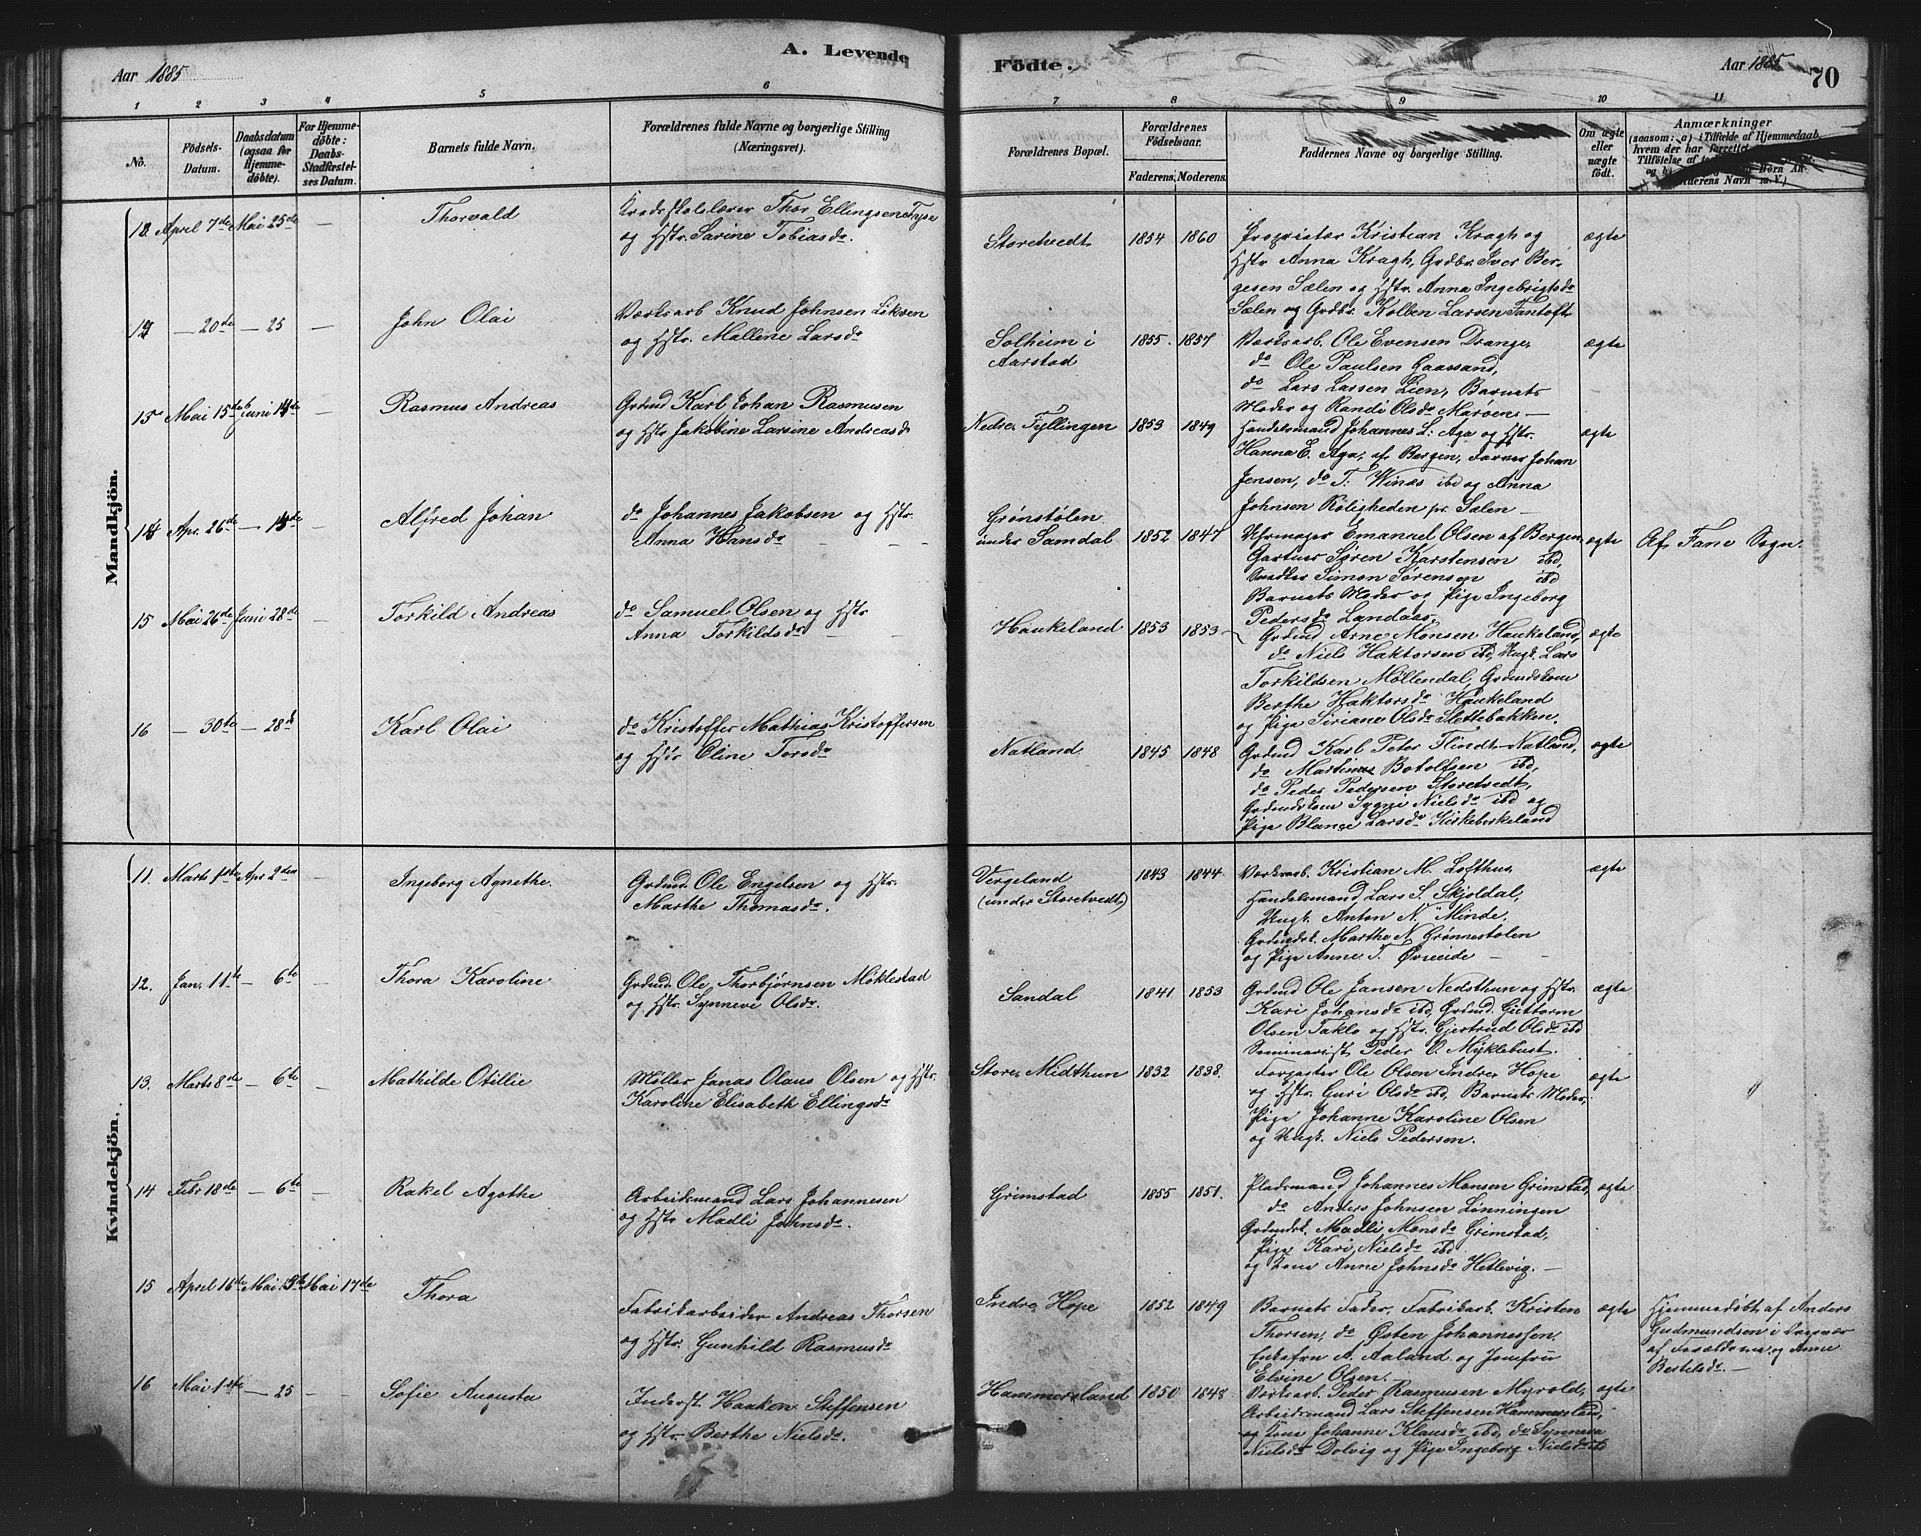 Aar 1885
A. Levende
Fødte.
Aar 1885
70
1 2 3 4 5 6 7 8 9 10 11
No.
Fødsels-
Datum.
Daabsdatum
(ogsaa for
Hjemme-
døbte).
For Hjemme-
døbte:
Daabs-
Stadfæstel-
ses Datum.
Barnets fulde Navn.
Forældrenes fulde Navne og borgerlige Stilling
(Næringsvei).
Forældrenes Bopæl.
Forældrenes
Fødselsaar.
Faderens. Moderens.
Faddernes Navne og borgerlige Stilling.
Om ægte
eller
uægte
født.
Anmærkninger
(saasom: a) i Tilfælde af Hjemmedaab,
hvem der har forrettet
Mandkjön.
April 7de Mai 25de — Thorvald
Kredsskolelærer Thor Ellingsen Tyse
og Hstr. Sarine Tobiasdr.
Storetvedt 1854 1860
Proprietær Kristian Kragh og
Hstr Anna Kragh, Grdbr. Iver Ber-
gesen Sælen og Hstr. Anna Ingebrigtsdr
Sælen og Grdbr. Kolben Larsen Fantoft
ægte
— 20de — 25 — John Olai
Værksarb. Knud Johnsen
og Hstr. Mallene Larsdr
Solheim i
Aarstad
1855. 1857
Værksarb. Ole Evensen Drange,
do Ole Paulsen Gaassand,
do Lars Larsen Lien, Barnets
Moder og Randi Olsdr —
ægte
Mai 15de Juni 14de — Rasmus Andreas
Grdmd Karl Johan Rasmusen
og Hstr Jakobine Larsine Andreasdr
Nedre Fyllingen 1853 1849
Handelsmand Johannes L. Aga og Hstr.
Hanna E. Aga, af Bergen, Farver Johan
Jensen, do T. Winæs ibd og Anna
Johnsen Roligheden pr. Sælen —
ægte
14 Apr. 26de — — Alfred Johan
do Johannes Jakobsen og Hstr.
Anna Hansdr — —
Grønstølen
under Samdal 1852 1847
Uhrmager Emanuel Olsen af Bergen,
Gartner Søren Karstensen ibd,
Snedker Simon Sørensen ibd
Barnets Moder og Pige Ingeborg
Pedersdr Landaas,
ægte
Af Fane Sogn.
15 Mai 26de Juni 28de — Torkild Andreas
do Samuel Olsen og Hstr
Anna Torkildsdr — —
Haukeland 1853 1853
Grdmd Arne Monsen Haukeland,
do Niels Haktorsen ibd, Ungk. Lars
Torkildsen Møllendal, Grdmdskone
Berthe Haktorsdr Haukeland
og Pige Siriane Olsdr Slettebakken.
ægte
16 — 30te — 28d — Karl Olai
do Kristoffer Mathias Kristoffersen
og Hstr Oline Torsdr
Natland 1845 1848
Grdmd Karl Peter Flindt Natland,
do Martinus Botolfsen ibd,
do Peder Pedersen Storetvedt,
Grdmdskone Nielsdr ibd og
Pige Larsdr Kirkebirkeland
ægte
Kvindekjön.
11. Marts 1ste Apr 2den Ingeborg Agnethe.
Grdmd. Ole Engelsen og Hstr.
Marthe Thomasdr.
Vergeland
(under Storetvedt) 1843 1844
Værksarb. Kristian M. Lofthus,
Handelsmand Lars S. Skjoldal,
Ungk. Anton N. Minde.
Grdmdsk. Marthe N. Grønnestølen
og Pige Anne T. Øvreeide —
ægte
12. Jan. 11te — 6te — Thora Karoline
Grdmd. Ole Thorbjørnsen Miklestad
og Hstr. Synneve Olsdr.
Sandal 1841 1853
Grdmd Ole Jansen Nedsthun og Hstr.
Kari Johansdr ibd, Grdmd. Guttorm
Olsen Taklo og Hstr. Gjertrud Olsdr ibd
Seminarist Peder O. Myklebust.
ægte
13. Marts 8de — 6te — Mathilde Otillie
Møller Jonas Olaus Olsen og Hstr.
Karoline Elisabeth Ellingsdr
Store Midthun 1832 1838.
Forpagter Ole Olsen Indre Hope
og Hstr. Guri Olsdr ibd, Barnets Moder,
Pige Johanne Karoline Olsen
og Ungk. Niels Pedersen.
ægte
14 Febr 18de — 6te — Rakel Agathe
Arbeidsmand Lars Johannesen
og Hstr Madli Johnsdr.
Grimstad 1855 1851.
Pladsmand Johannes Monsen Grimstad,
do Anders Johnsen Lønningen
Grdmdsk. Madli Monsdr Grimstad,
Pige Kari Nielsdr ibd.
og Kone Anne Johnsdr Hetlevig. —
ægte
15 April 16de Mai Mai 17de Thora
Fabrikarbeider Andreas Thorsen
og Hstr. Gunhild Rasmusdr
Indre Hope 1852 1849
Barnets Fader, Fabrikarb. Kristen
Thorsen, do Østen Johannessen,
Enkefru A. Aaland og Jomfru
Elvine Olsen. —
ægte
Hjemmedøbt af Anders
Gudmundsen i Nærvær
af Forældrene og Anne
Bertelsdr. —
16 Mai 1ste — 25 — Sofie Augusta
Inderst Haakon Steffensen
og Hstr Berthe Nielsdr.
Hammersland 1850 1848
Værksarb. Peder Rasmusen Myrold,
Arbeidsmand Lars Steffensen Hammersland,
og Kone Johanne Klausdr ibd, do Synneva
Nielsdr Dolvig og Pige Ingeborg Nielsdr ibd
ægte